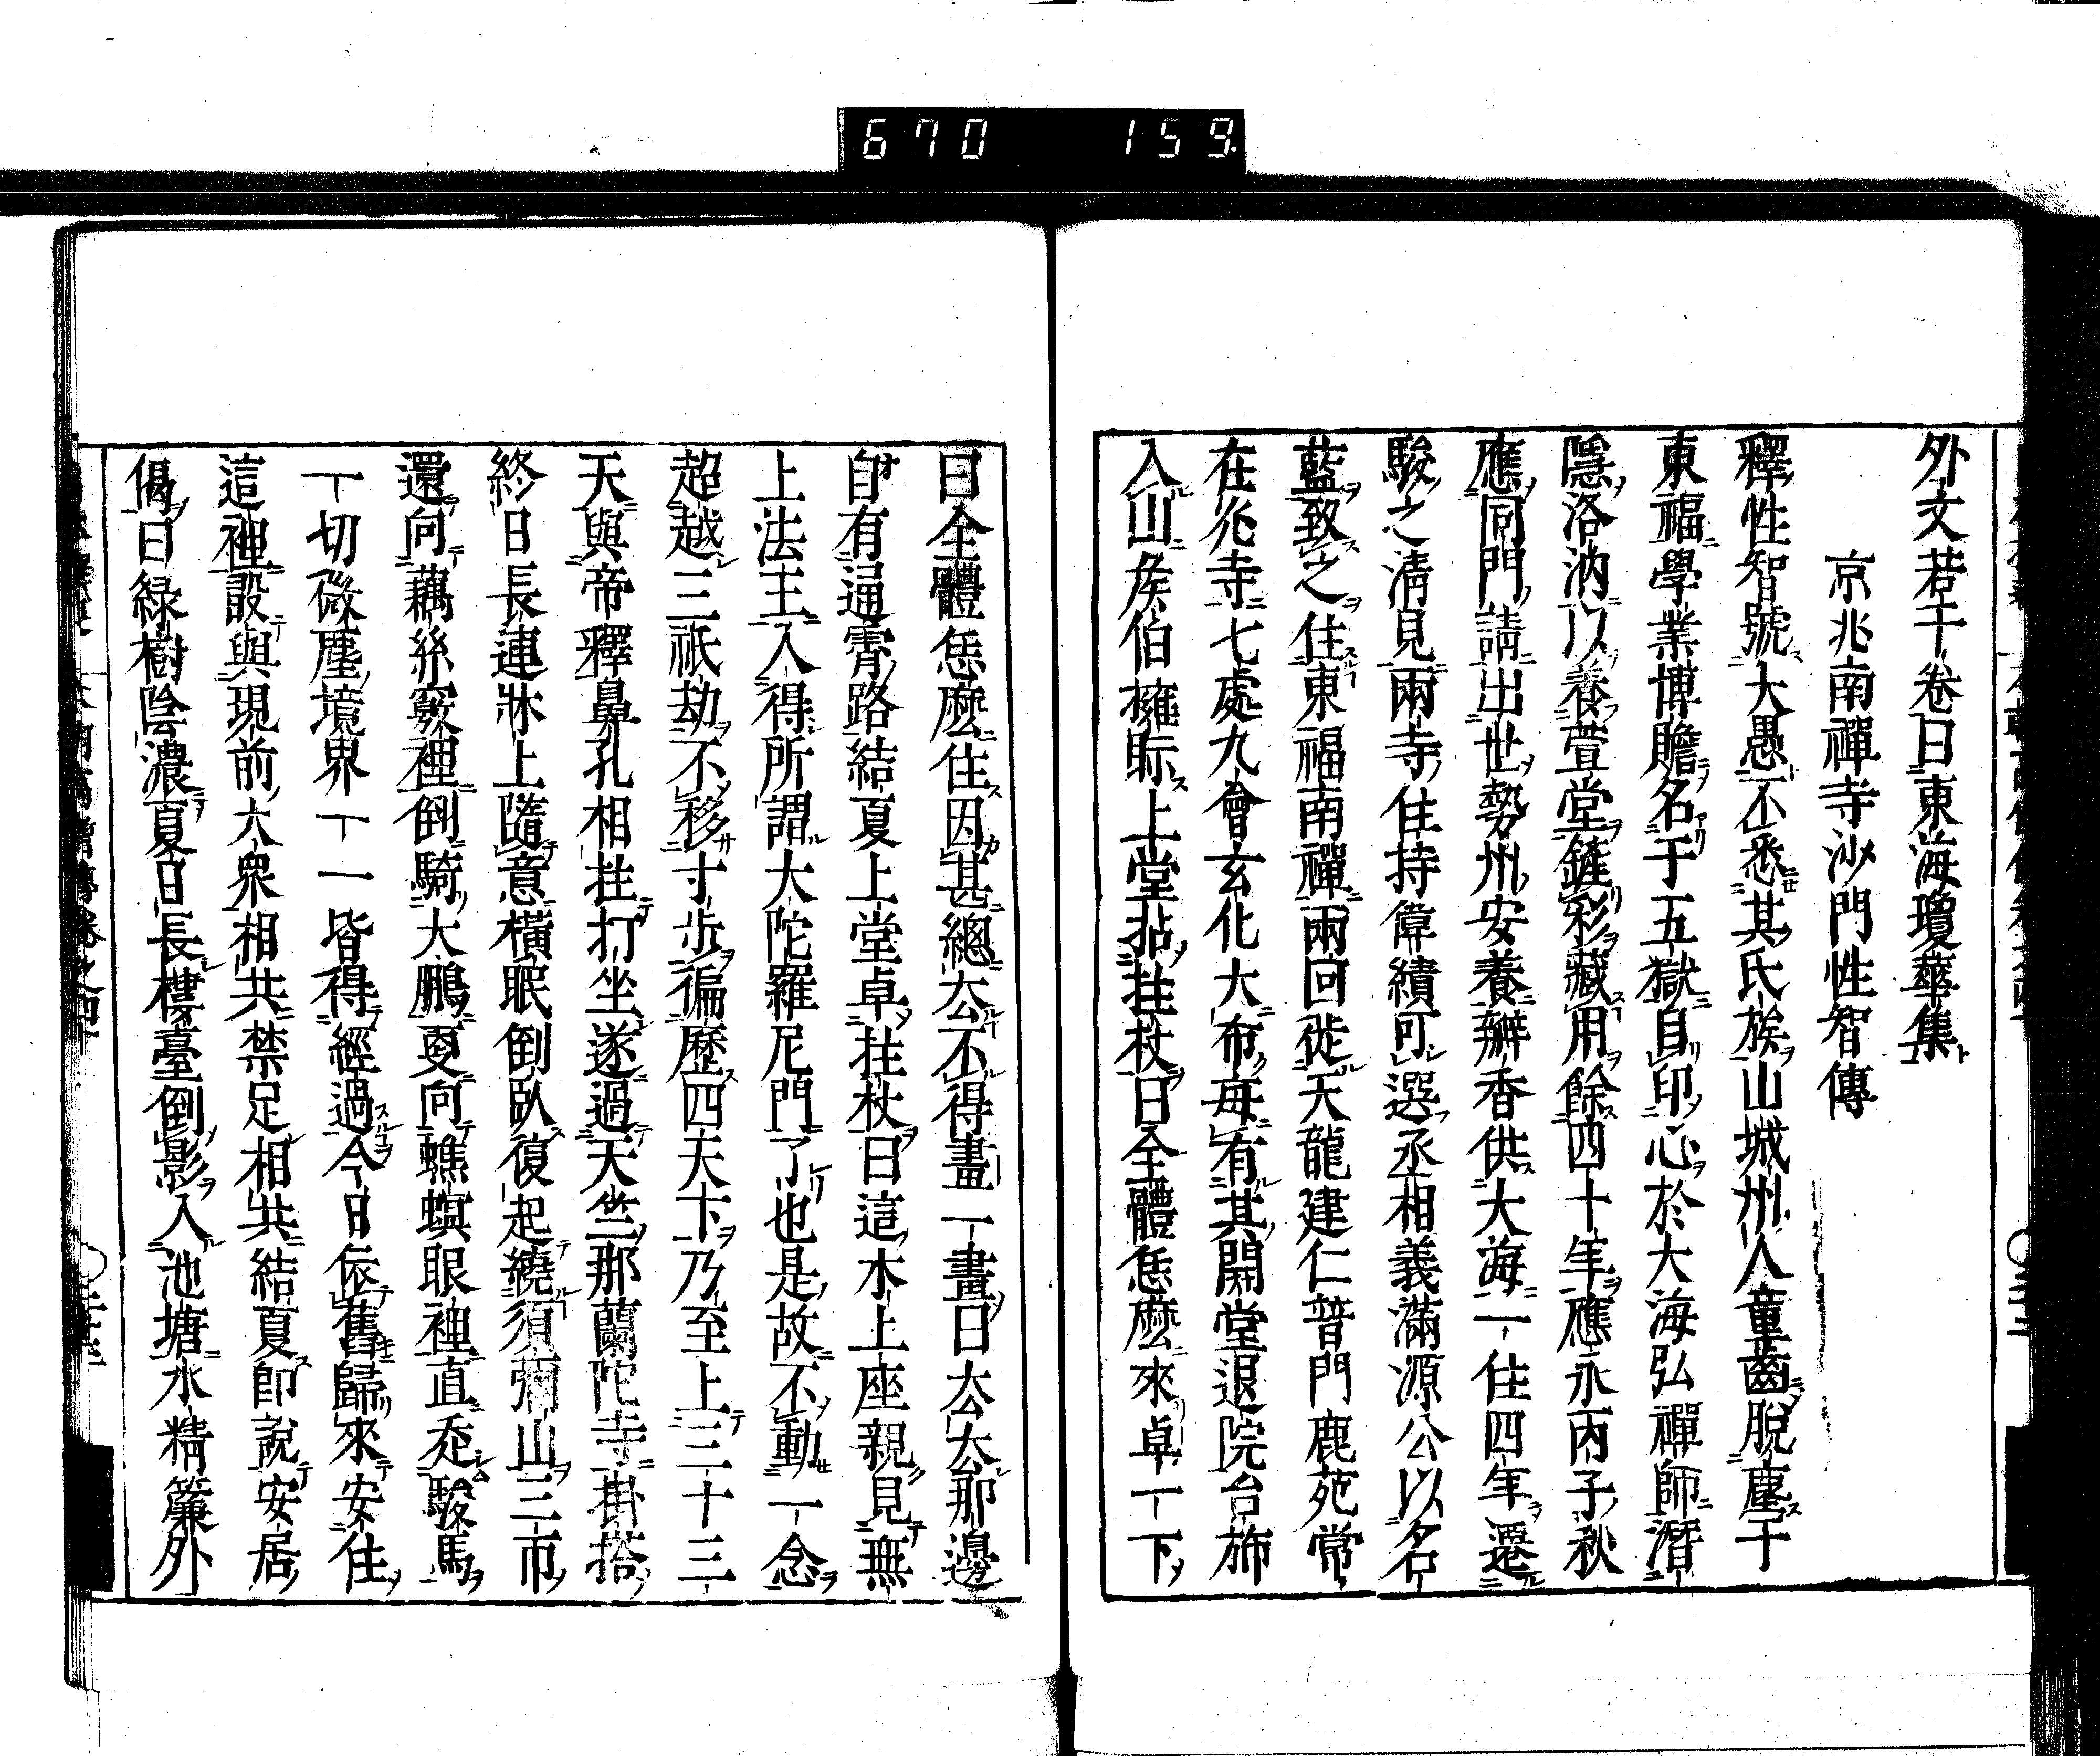 670 159
外文若干卷曰東海瓊華集
京兆南禪寺沙門性智傳
釋性智號大愚不悉其氏族山城州人童齒脫塵于
東福學業博贍名于五獄自印心於大海弘禪師潛
隱洛汭以養萱堂鏟彩藏用餘四十年應永丙子秋
應同門請出世勢州安養瓣香供大海一住四年還
駿之淸見兩寺住持偉績可選丞相義滿源公以名
藍致之住東福南禪兩回徙天龍建仁普門鹿苑常
在光寺七處九會玄化大布每有其開堂退院台旆
入山矦伯擁眎上堂拈拄杖曰全體恁麼來卓一下
曰全體恁麼住因甚總厺不得畫一畫曰厺厺那邊
自有通霄路結夏上堂卓拄杖曰這木上座親見無
上法王入得所謂大陀羅尼門了也是故不動一念
超越三祇劫不移寸步徧歷四天下乃至上三十三
天與帝釋鼻孔相拄打坐遂過天竺那蘭陀寺掛搭
終日長連牀上隨意橫眠倒臥復起繞須彌山三帀
還向藕絲竅裡倒騎大鵬更向蟭螟眼裡直走駿馬
一切微塵境界一一皆得經過今日依舊歸來安住
這裡設與現前大衆相共禁足相共結夏卽說安居
偈曰綠樹陰濃夏日長樓臺倒影入池塘水精簾外